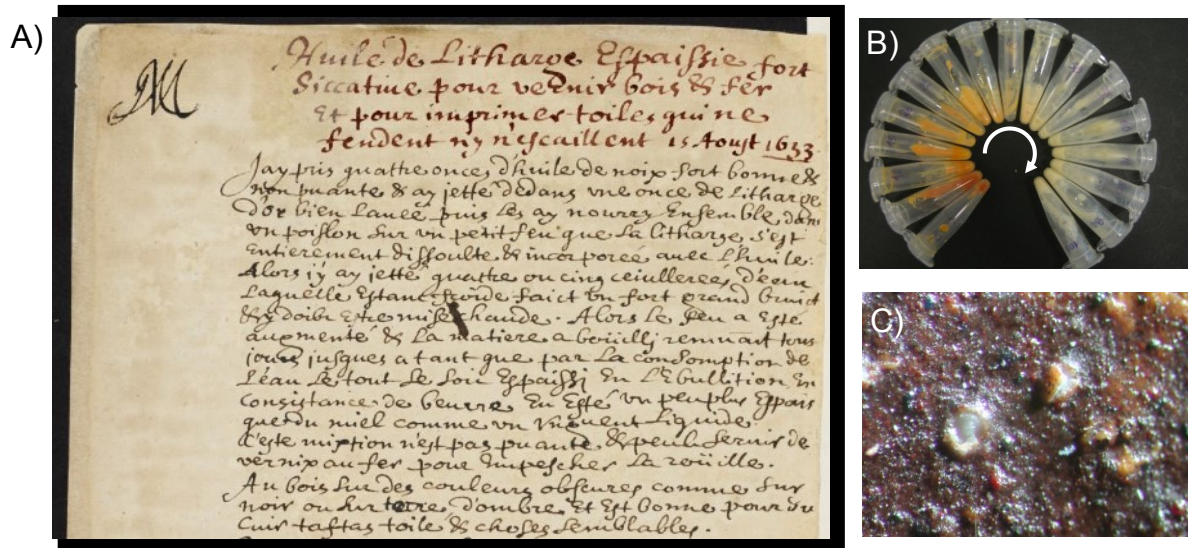 A)
B)
C)
M
Huile de Litharge Espaissie fort
Siccative pour vernir bois & fer
Et pour imprimer toiles qui ne
fendent ny n'escaillent 15 Aoust 1633.
Jay pris quattre once d'huile de noix fort bonne &
non puante & ay jette dedans une once de litharge
d'or bien lavée puis les ay nourry Ensemble dans
un poislon sur un petit feu que la litharge s'est
Entierement dissoulte & incorporée avec l'huile.
Alors j'y ay jetté quattre ou cinq ceiullerées d'eau
Laquelle Estant froide faict un fort grand bruict
& y doibt Estre mise chaude. Alors le feu a Esté
augmenté & la matiere a boüilly remuant tous
jours jusques a tant que par la consomption de
l'eau le tout se soit Espaissi En l'Ebullition En
Consistance de beurre En Esté un peu plus Espais
que du miel comme un unguent liquide
C'este mixtion n'est pas puante & peult servir de
vernix au fer pour Empescher la roüille.
Au bois sur des couleurs obscures comme sur
noir ou sur terre d'ombre Et Est bonne pour du
cuir taftas toile & choses semblables.